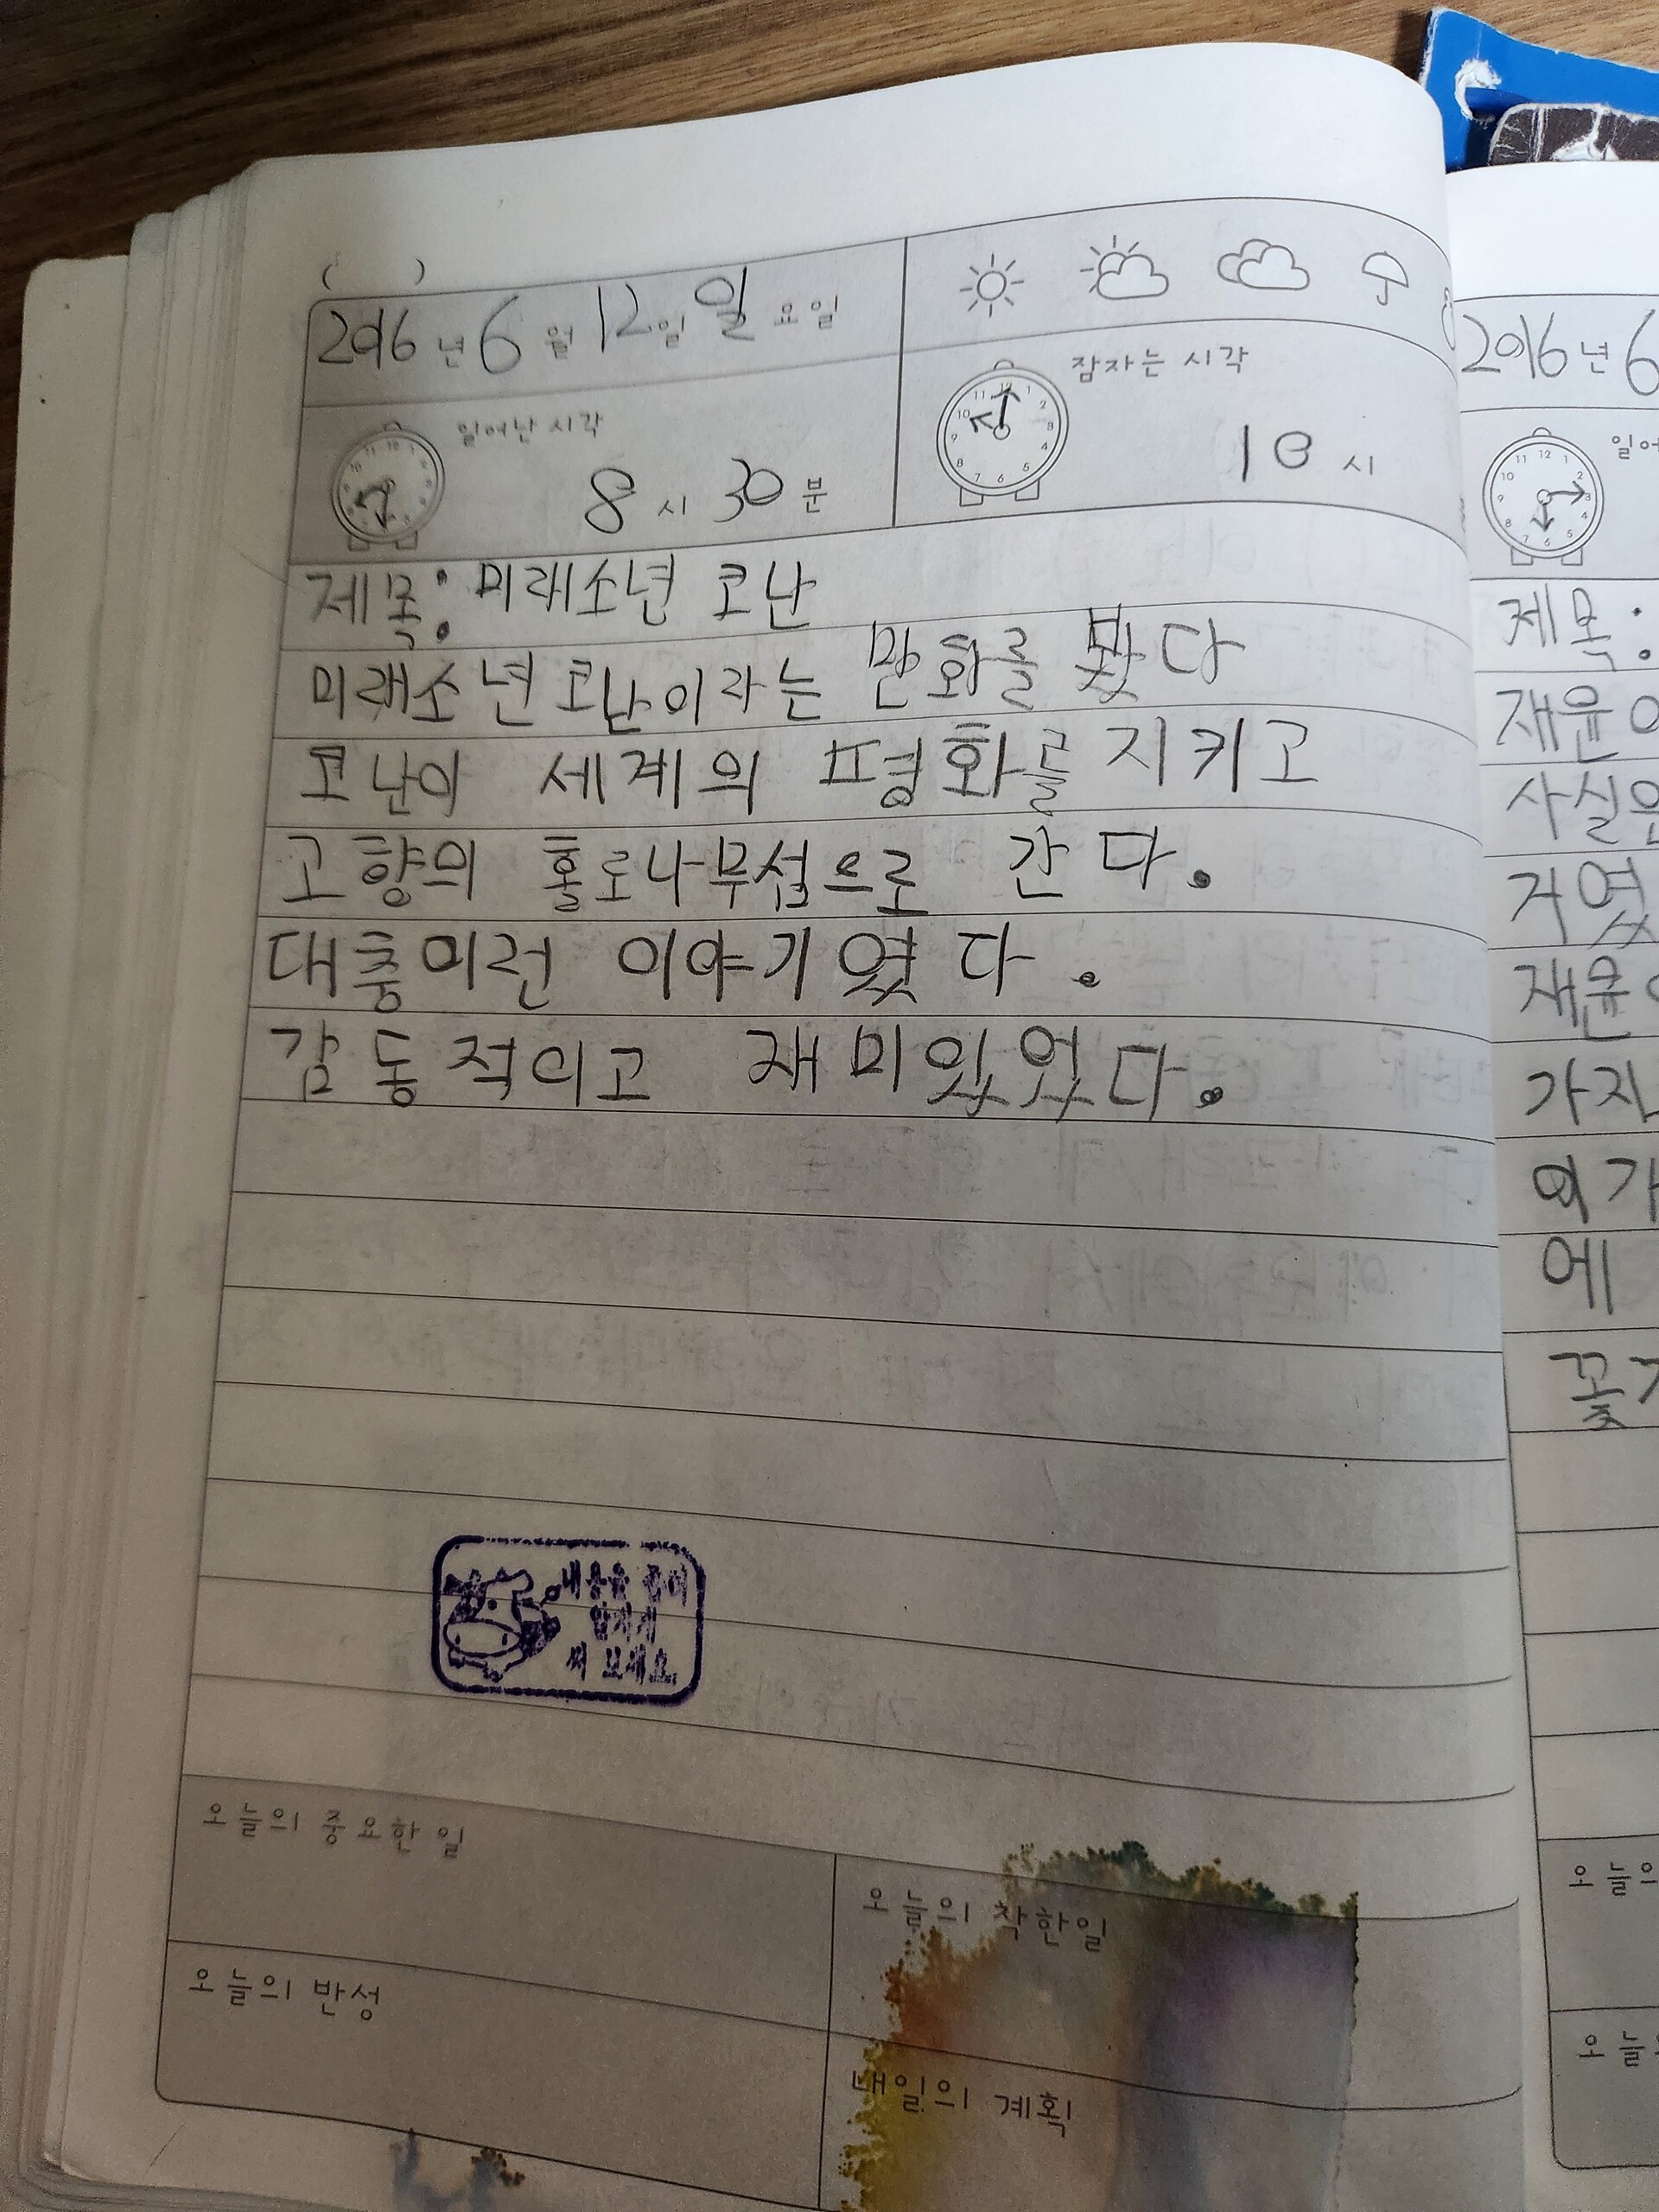 ( )
2016 년 6 월 12 일 일 요일
일어난 시각
8 시 30 분
잠자는 시각
10 시
제목: 미래소년 코난
미래소년 코난이라는 만화를 봤다
코난이 세계의 평화를 지키고
고향의 홀로나무섬으로 간다.
대충이런 이야기였다.
감동적이고 재미있었다.
내용을 좀더
알차게
써 보세요.
오늘의 중요한 일
오늘의 착한일
오늘의 반성
내일의 계획
2016 년 6
일어
제목:
재윤이
사실은
거였
재윤
가지
여기
에
꽃
오늘의
오늘